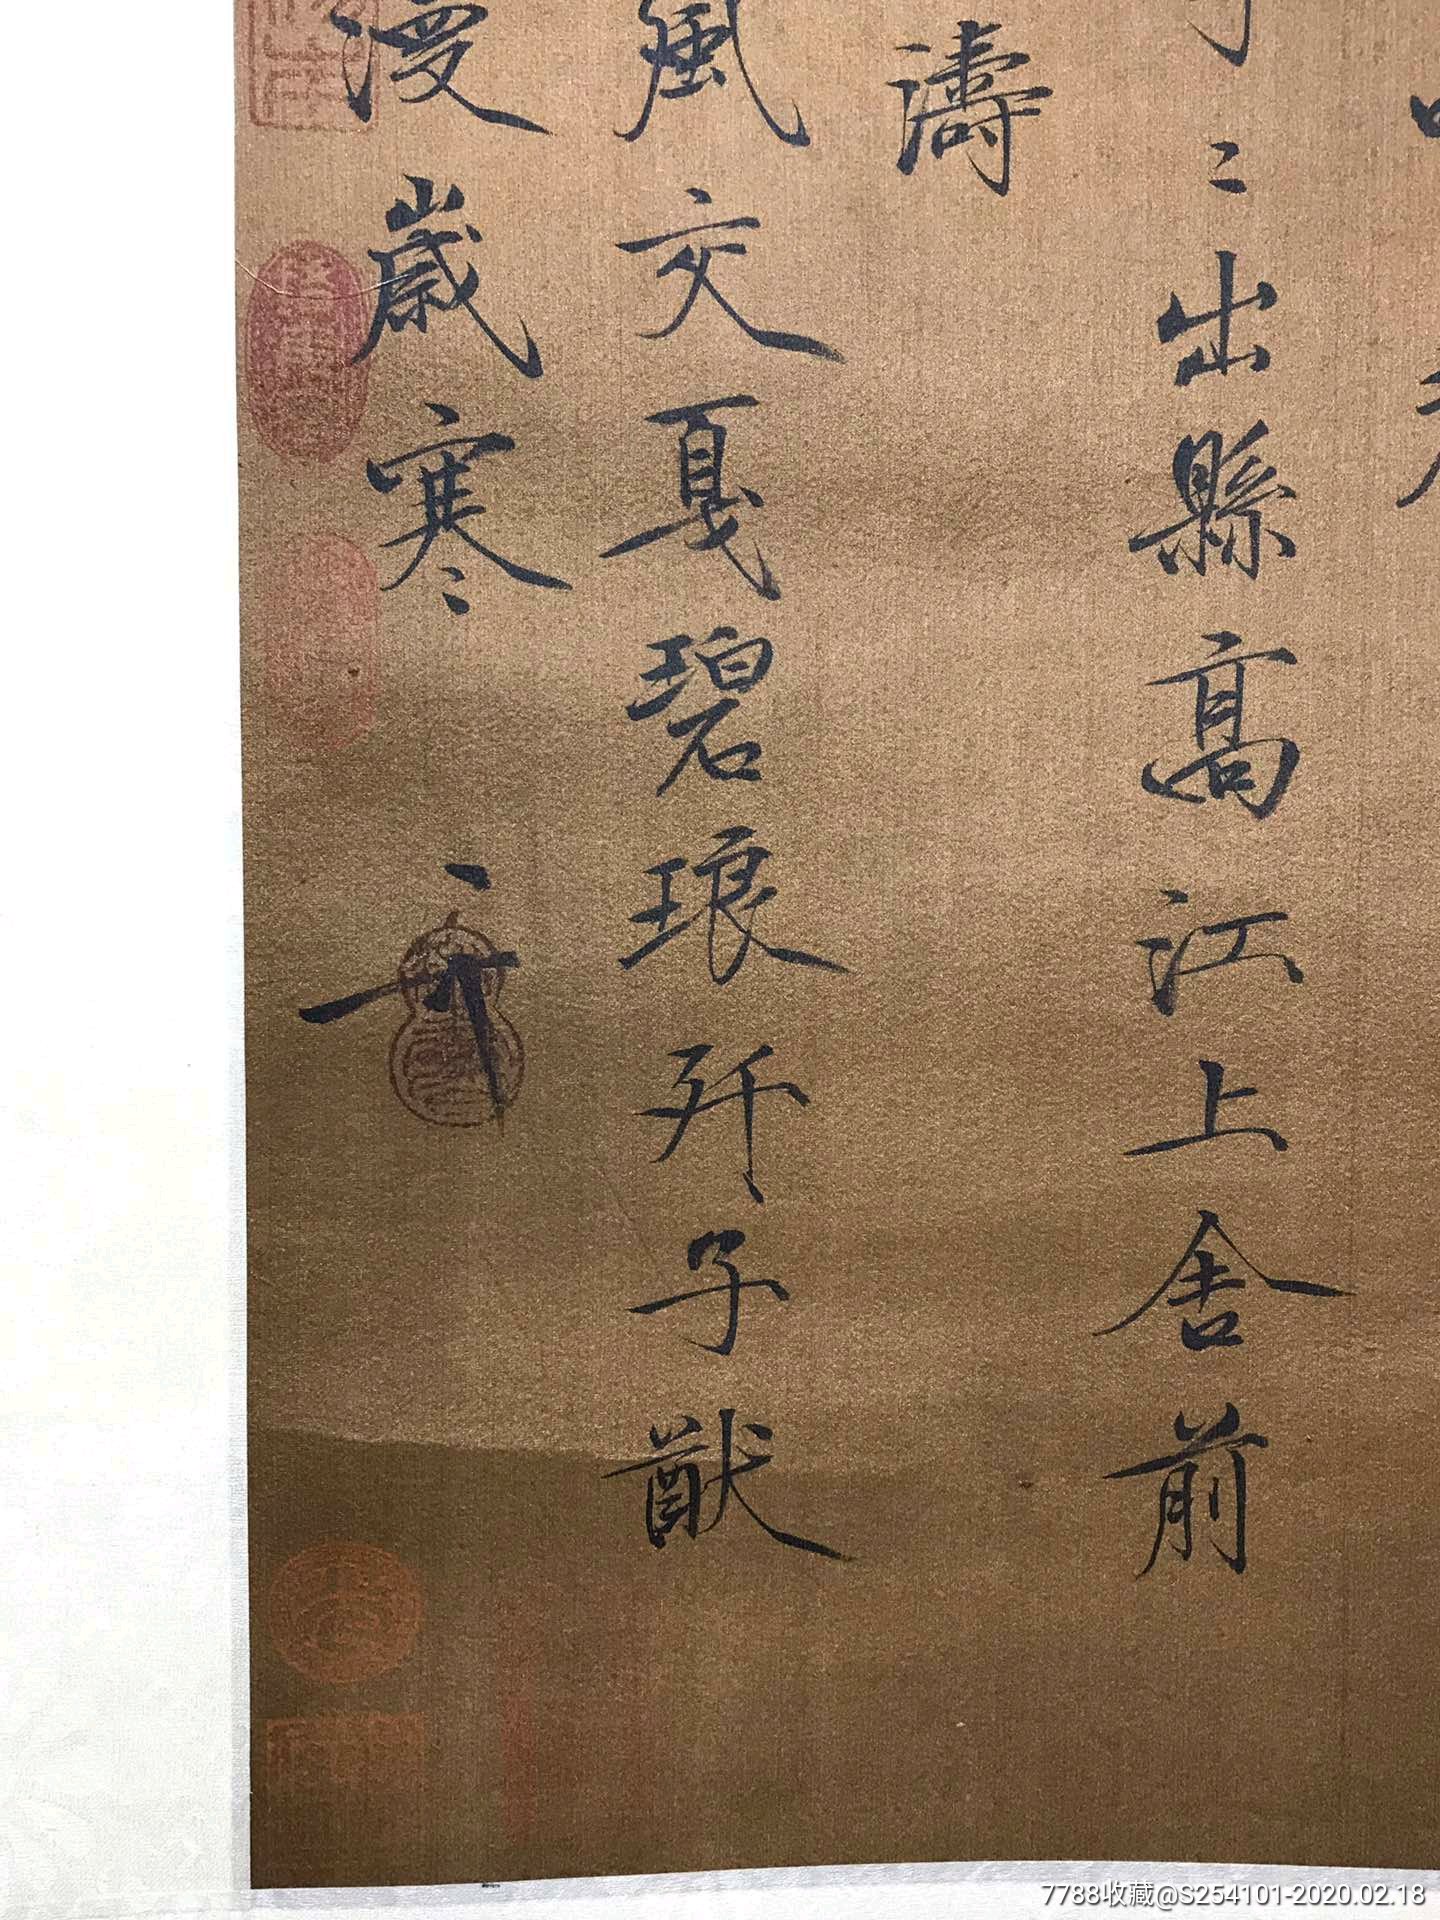 〻出縣高江上舍前
濤
風交戛碧琅玕子猷
漫歲寒
7788收藏@S254101-2020.02.18